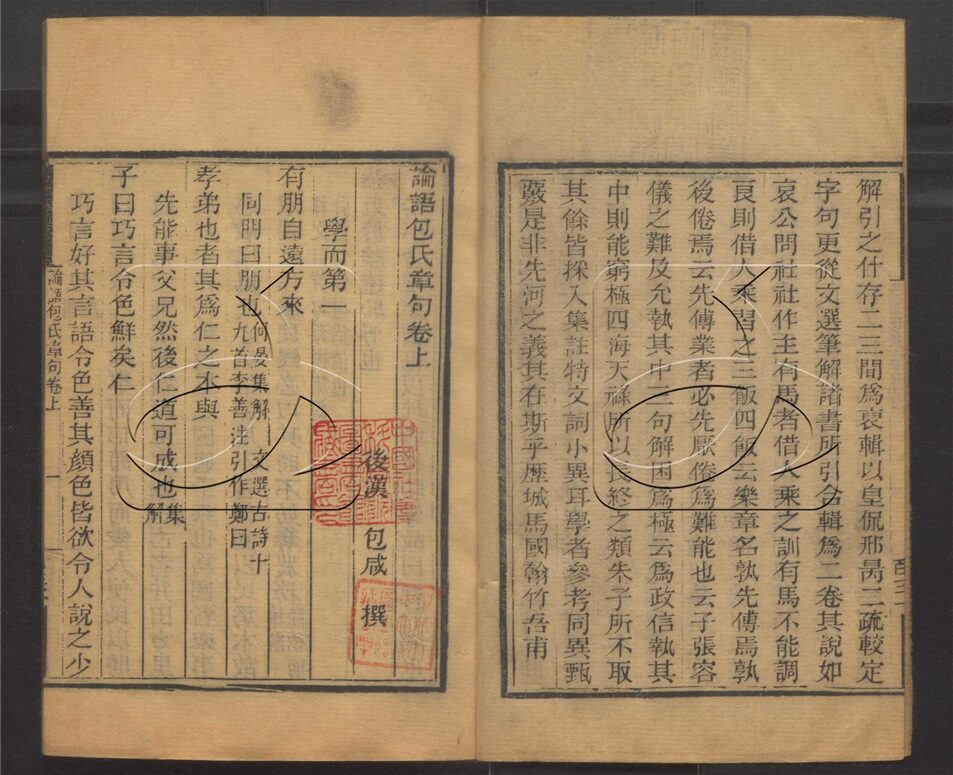 解引之什存二三間爲裒輯以皇侃邢昺二疏較定
字句更從文選筆解諸書所引合輯爲二卷其說如
哀公問社社作主有馬者借人乘之訓有馬不能調
良則借人乘習之三飯四飯云樂章名孰先傳焉孰
後倦焉云先傳業者必先厭倦爲難能也云子張容
儀之難及允執其中三句解困爲極云爲政信執其
中則能窮極四海天祿所以長終之類朱子所不取
其餘皆採入集註特文詞小異耳學者參考同異甄
覈是非先河之義其在斯乎歷城馬國翰竹吾甫
論語包氏章句卷上
後漢 包咸 撰
學而第一
有朋自遠方來
同門曰朋也何晏集解 文選古詩十九首李善注引作鄭曰
孝弟也者其爲仁之本與
先能事父兄然後仁道可成也集解
子曰巧言令色鮮矣仁
巧言好其言語令色善其顏色皆欲令人說之少
論語包氏章句卷上
一